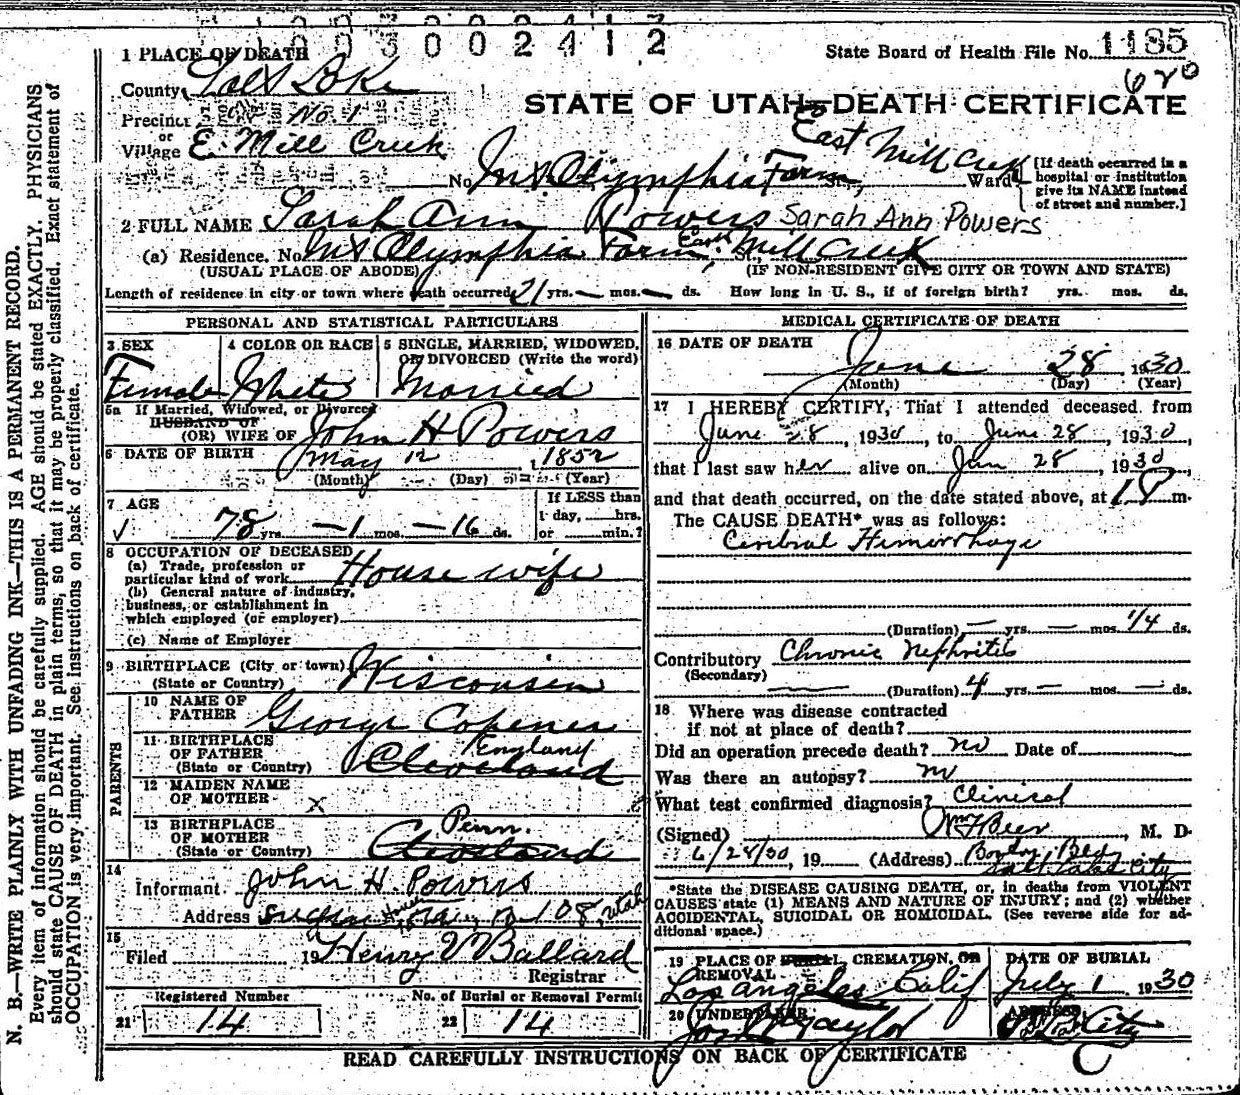 1003002412
State Board of Health File No. 1185
620
STATE OF UTAH—DEATH CERTIFICATE
1 PLACE OF DEATH
County Salt Lake
Precinct No. 1
or
Village E. Mill Creek
No. Mt Olymphia Farm St., East Mill Creek Ward
[If death occurred in a
hospital or institution
give its NAME instead
of street and number.]
2 FULL NAME Sarah Ann Powers Sarah Ann Powers
(a) Residence. No. Mt Olymphia Farm, East St., Mill Creek
(USUAL PLACE OF ABODE) (IF NON-RESIDENT GIVE CITY OR TOWN AND STATE)
Length of residence in city or town where death occurred 21 yrs. — mos. — ds. How long in U. S., if of foreign birth? yrs. mos. ds.
PERSONAL AND STATISTICAL PARTICULARS
3 SEX
Female
4 COLOR OR RACE
White
5 SINGLE, MARRIED, WIDOWED,
OR DIVORCED (Write the word)
Married
5a If Married, Widowed, or Divorced
HUSBAND OF
(OR) WIFE OF John H Powers
6 DATE OF BIRTH May 12, 1852
(Month) (Day) (Year)
7 AGE
√ 78 yrs. — 1 mos. — 16 ds.
If LESS than
1 day, hrs.
or min.?
8 OCCUPATION OF DECEASED
(a) Trade, profession or
particular kind of work House wife
(b) General nature of industry,
business, or establishment in
which employed (or employer)
(c) Name of Employer
9 BIRTHPLACE (City or town)
(State or Country) Wisconsin
PARENTS
10 NAME OF
FATHER George Copener
11 BIRTHPLACE
OF FATHER England
(State or Country) Cleveland
12 MAIDEN NAME
OF MOTHER x
13 BIRTHPLACE
OF MOTHER Penn.
(State or Country) Cleveland
14
Informant John H. Powers
Address 108, Utah
15
Filed 19 Henry V Ballard
Registrar
Registered Number
21 14
No. of Burial or Removal Permit
22 14
MEDICAL CERTIFICATE OF DEATH
16 DATE OF DEATH
June 28 1930
(Month) (Day) (Year)
17 I HEREBY CERTIFY, That I attended deceased from
June 28, 1930, to June 28, 1930,
that I last saw her alive on Jun 28, 1930,
and that death occurred, on the date stated above, at 1 P m.
The CAUSE DEATH* was as follows:
Cerebral Hemorrhage
(Duration) — yrs. — mos. 1/4 ds.
Contributory Chronic Nephritis
(Secondary)
(Duration) 4 yrs. — mos. — ds.
18 Where was disease contracted
if not at place of death?
Did an operation precede death? no Date of
Was there an autopsy? no
What test confirmed diagnosis? Clinical
(Signed) Wm F Beer, M. D.
6/28/30, 19 (Address) Boston Bldg
Salt Lake City
*State the DISEASE CAUSING DEATH, or, in deaths from VIOLENT
CAUSES state (1) MEANS AND NATURE OF INJURY; and (2) whether
ACCIDENTAL, SUICIDAL OR HOMICIDAL. (See reverse side for ad-
ditional space.)
19 PLACE OF BURIAL, CREMATION, OR
REMOVAL
Los Angeles Calif
DATE OF BURIAL
July 1 1930
20 UNDERTAKER
Jos Wm Taylor
ADDRESS
S. L. City
READ CAREFULLY INSTRUCTIONS ON BACK OF CERTIFICATE
N. B.—WRITE PLAINLY WITH UNFADING INK—THIS IS A PERMANENT RECORD.
Every item of information should be carefully supplied. AGE should be stated EXACTLY. PHYSICIANS
should state CAUSE OF DEATH in plain terms, so that it may be properly classified. Exact statement of
OCCUPATION is very important. See instructions on back of certificate.